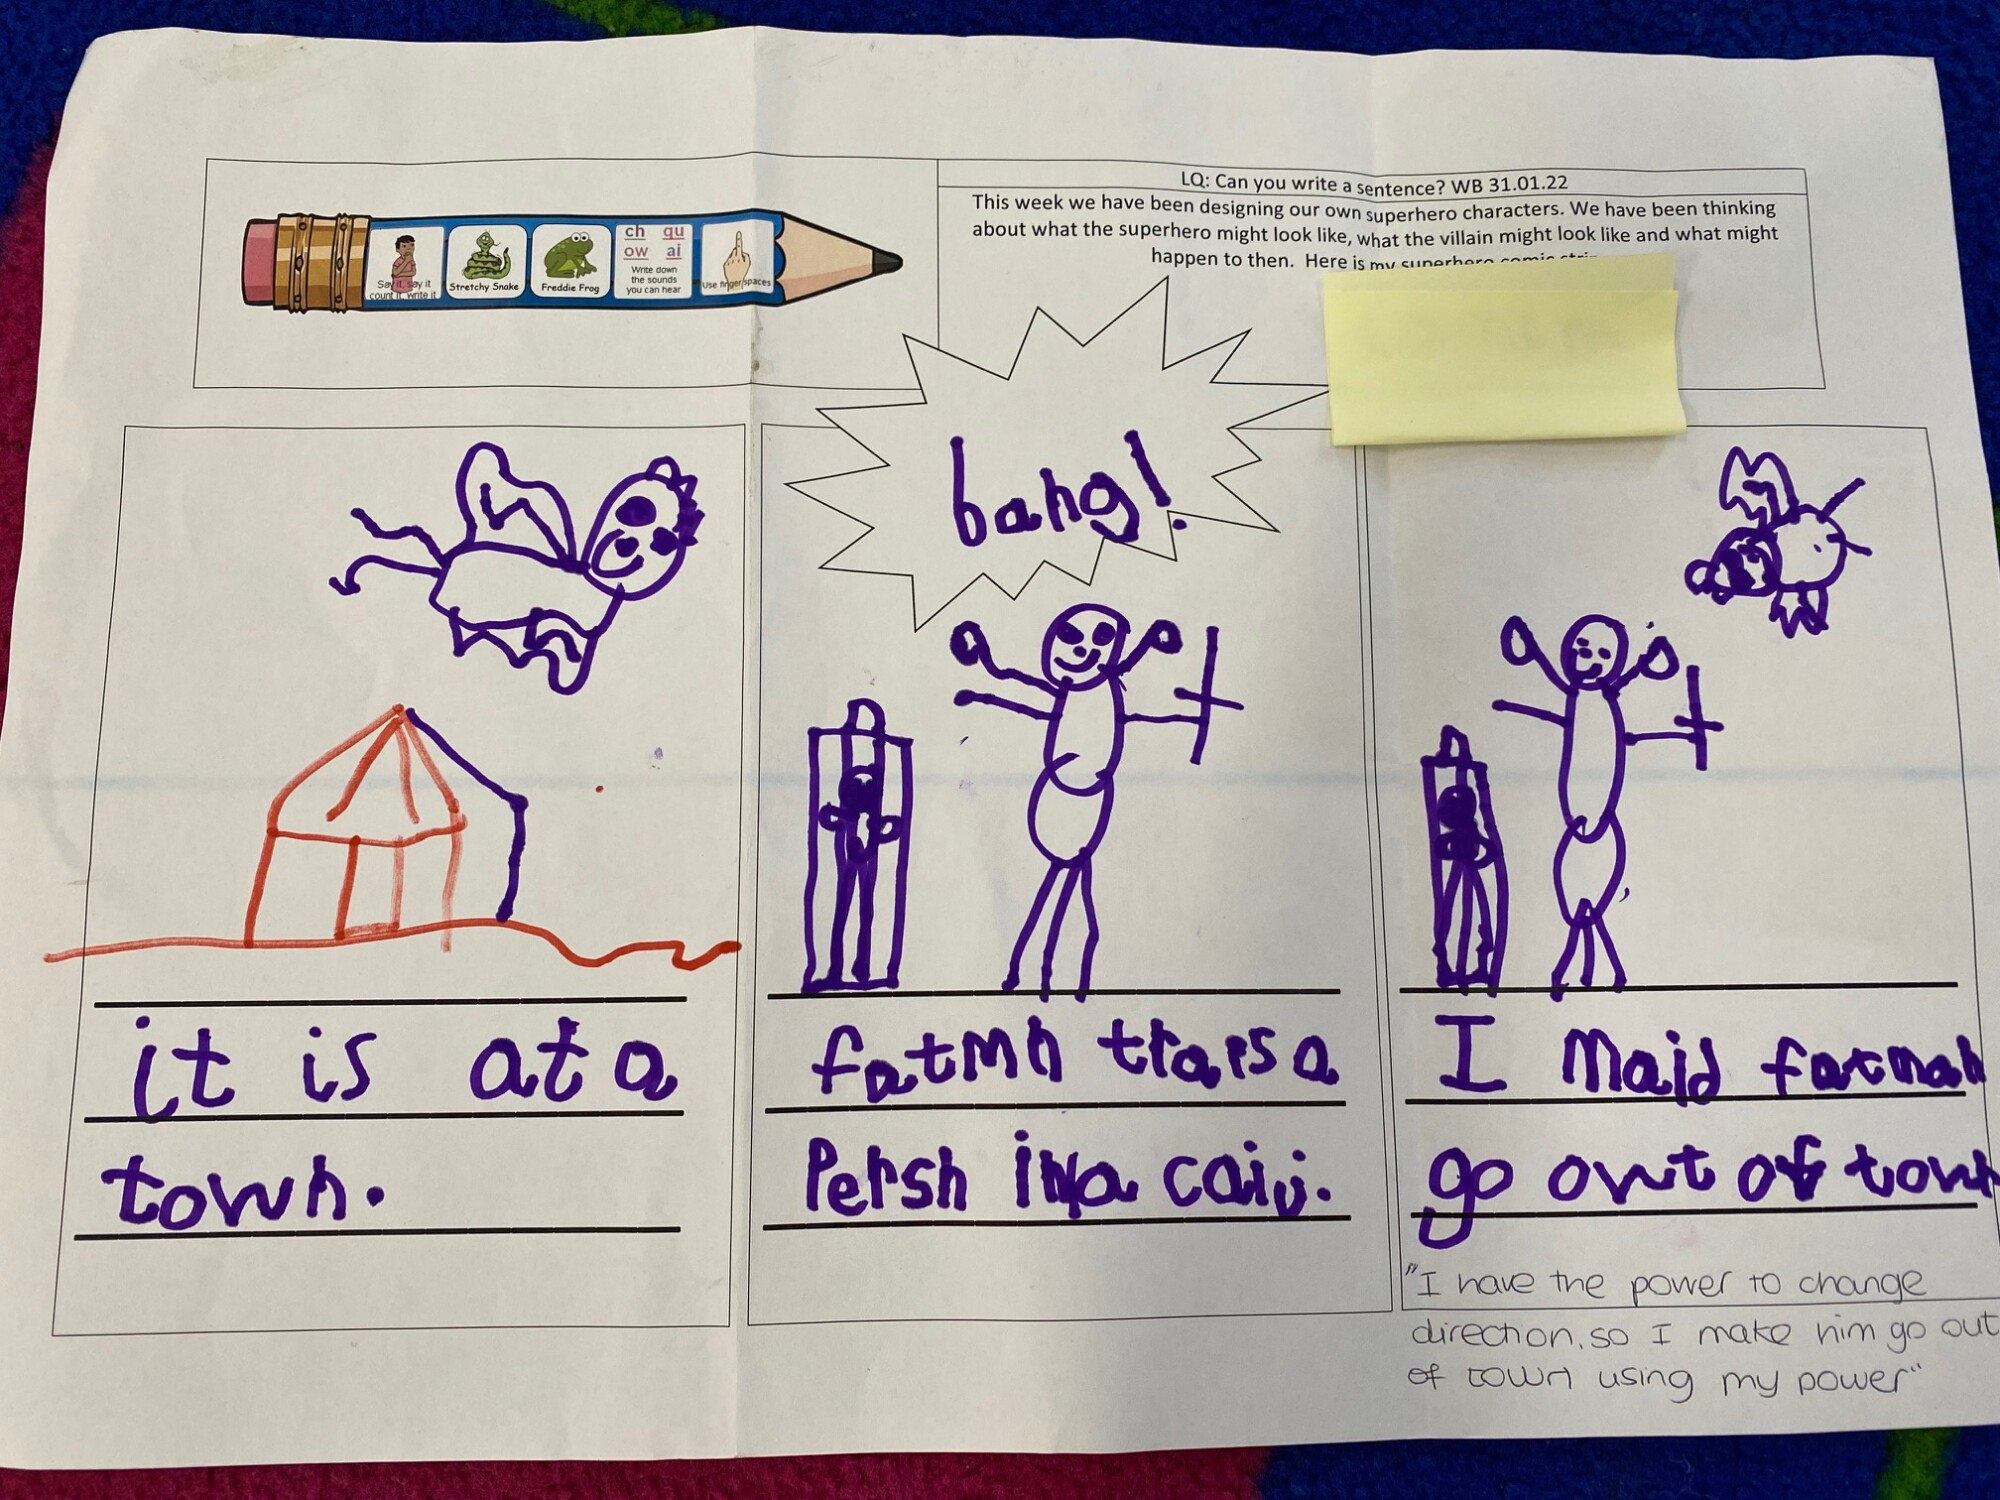 LQ: Can you write a sentence? WB 31.01.22
This week we have been designing our own superhero characters. We have been thinking
about what the superhero might look like, what the villain might look like and what might
happen to then. Here is my superhero comic strip
Say it, say it
count it, write it
Stretchy Snake
Freddie Frog
ch qu
ow ai
Write down
the sounds
you can hear
Use finger spaces
bang!
it is at a
town.
fatmn trars a
Persh in a caij.
I maid fatman
go out of town
"I have the power to change
direction, so I make him go out
of town using my power"